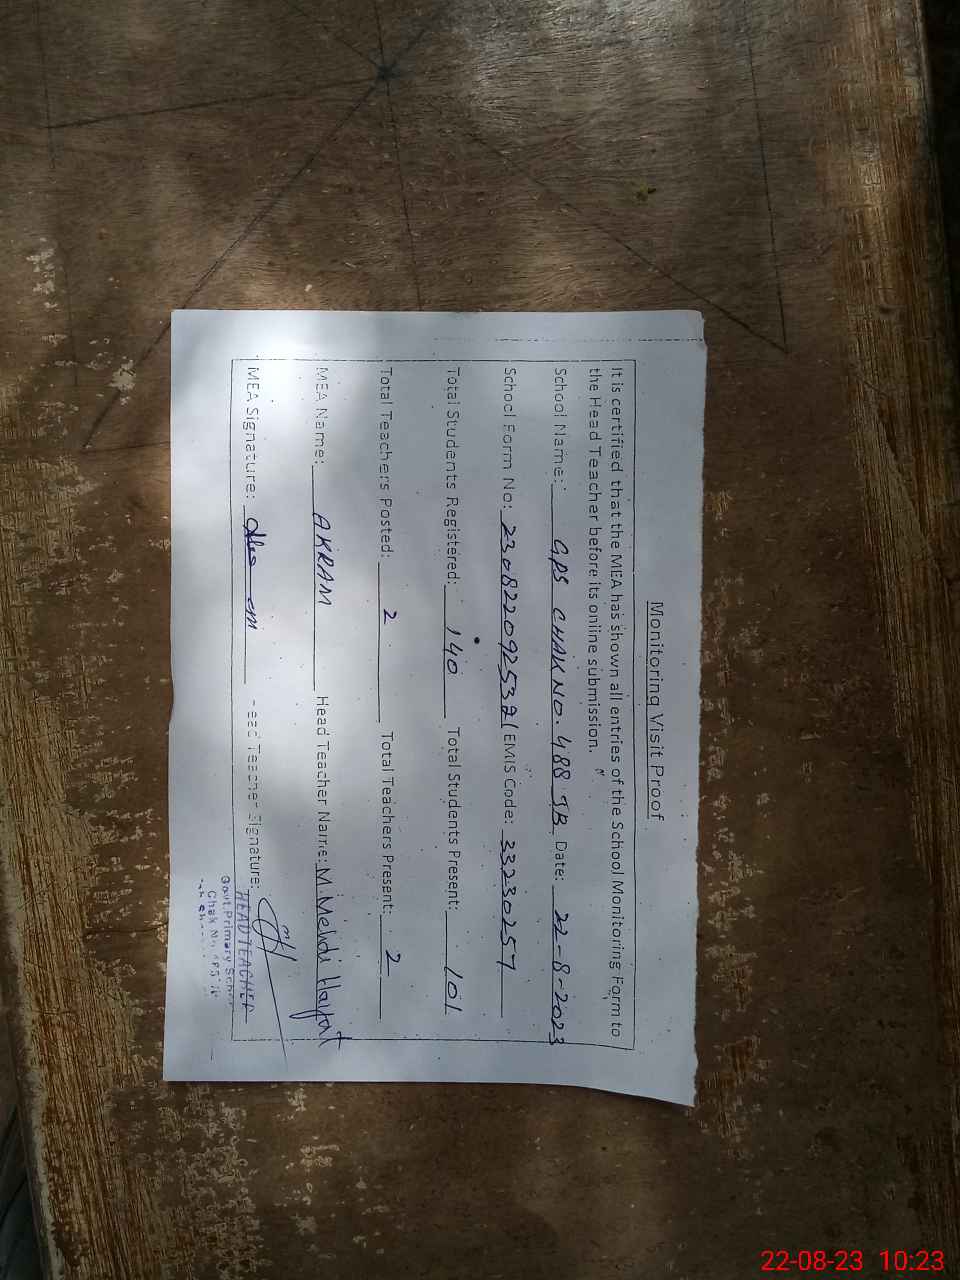 Monitoring Visit Proof
It is certified that the MEA has shown all entries of the School Monitoring Form to
the Head Teacher before its online submission.
School Name: GPS CHAK NO. 488 JB Date: 22-8-2023
School Form No: EMIS Code: 33230257
Total Students Registered: 140 Total Students Present: 101
Total Teachers Posted: 2 Total Teachers Present: 2
MEA Name: AKRAM Head Teacher Name: M. Mehdi Hayat
MEA Signature: Head Teacher Signature:
HEAD TEACHER
Govt. Primary School
Chak No.
22-08-23 10:23